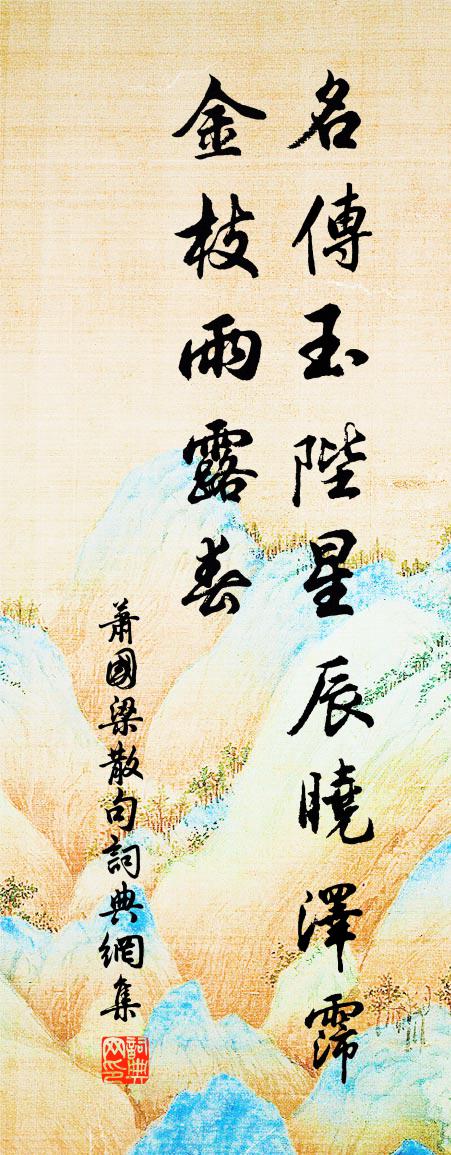 名傳玉陛星辰曉澤霈
金枝雨露春
蕭國梁散句詞典網集
詞典網印